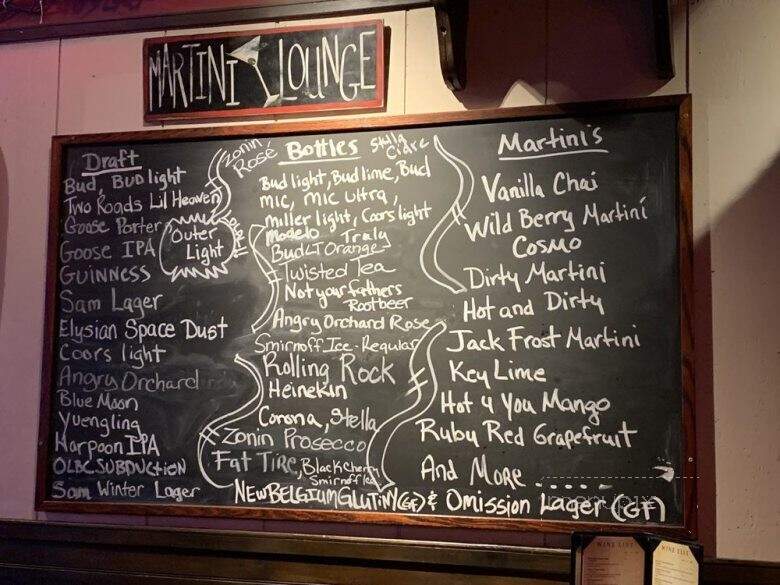 MARTINI LOUNGE
Draft
Bud, Bud light
Two Roads Lil Heaven
Goose Porter
Goose IPA
GUINNESS
Sam Lager
Elysian Space Dust
Coors light
Angry Orchard
Blue Moon
Yuengling
Harpoon IPA
OLBC SUBDUCTION
Sam Winter Lager
Outer
Light
Zonin
Rosé
Bottles
Stella
Cidre
Bud light, Bud lime, Bud
mic, mic ultra,
miller light, Coors light
Modelo Truly
Bud LT Orange
Twisted Tea
Not your fathers
Rootbeer
Angry Orchard Rose
Smirnoff Ice - Regular
Rolling Rock
Heinekin
Corona, Stella
Zonin Prosecco
Fat Tire, Black Cherry
Smirnoff Ice
NEW BELGIUM GLUTINY (GF) & Omission Lager (GF)
Martini's
Vanilla Chai
Wild Berry Martini
Cosmo
Dirty Martini
Hot and Dirty
Jack Frost Martini
Key Lime
Hot 4 You Mango
Ruby Red Grapefruit
And More ......
WINE LIST
WINE LIST